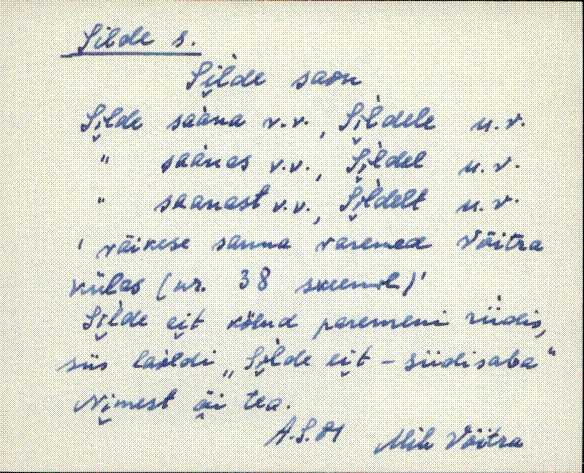 Silde s.
Sịlde saon
Sịlde saàna v.v., Sịldele u.v.
" saànas v.v., Sịldel u.v.
" saanast v.v., Sịldelt u.v.
' väikese sauna varemed Võitra
külas (nr. 38 skeemil)'
Sịlde eịt kõlnd paremeni riidis,
siis laòldi „Sịlde eịt – siidisaba"
Nịmest äi tea.
A.S. 81 Mih Võitra